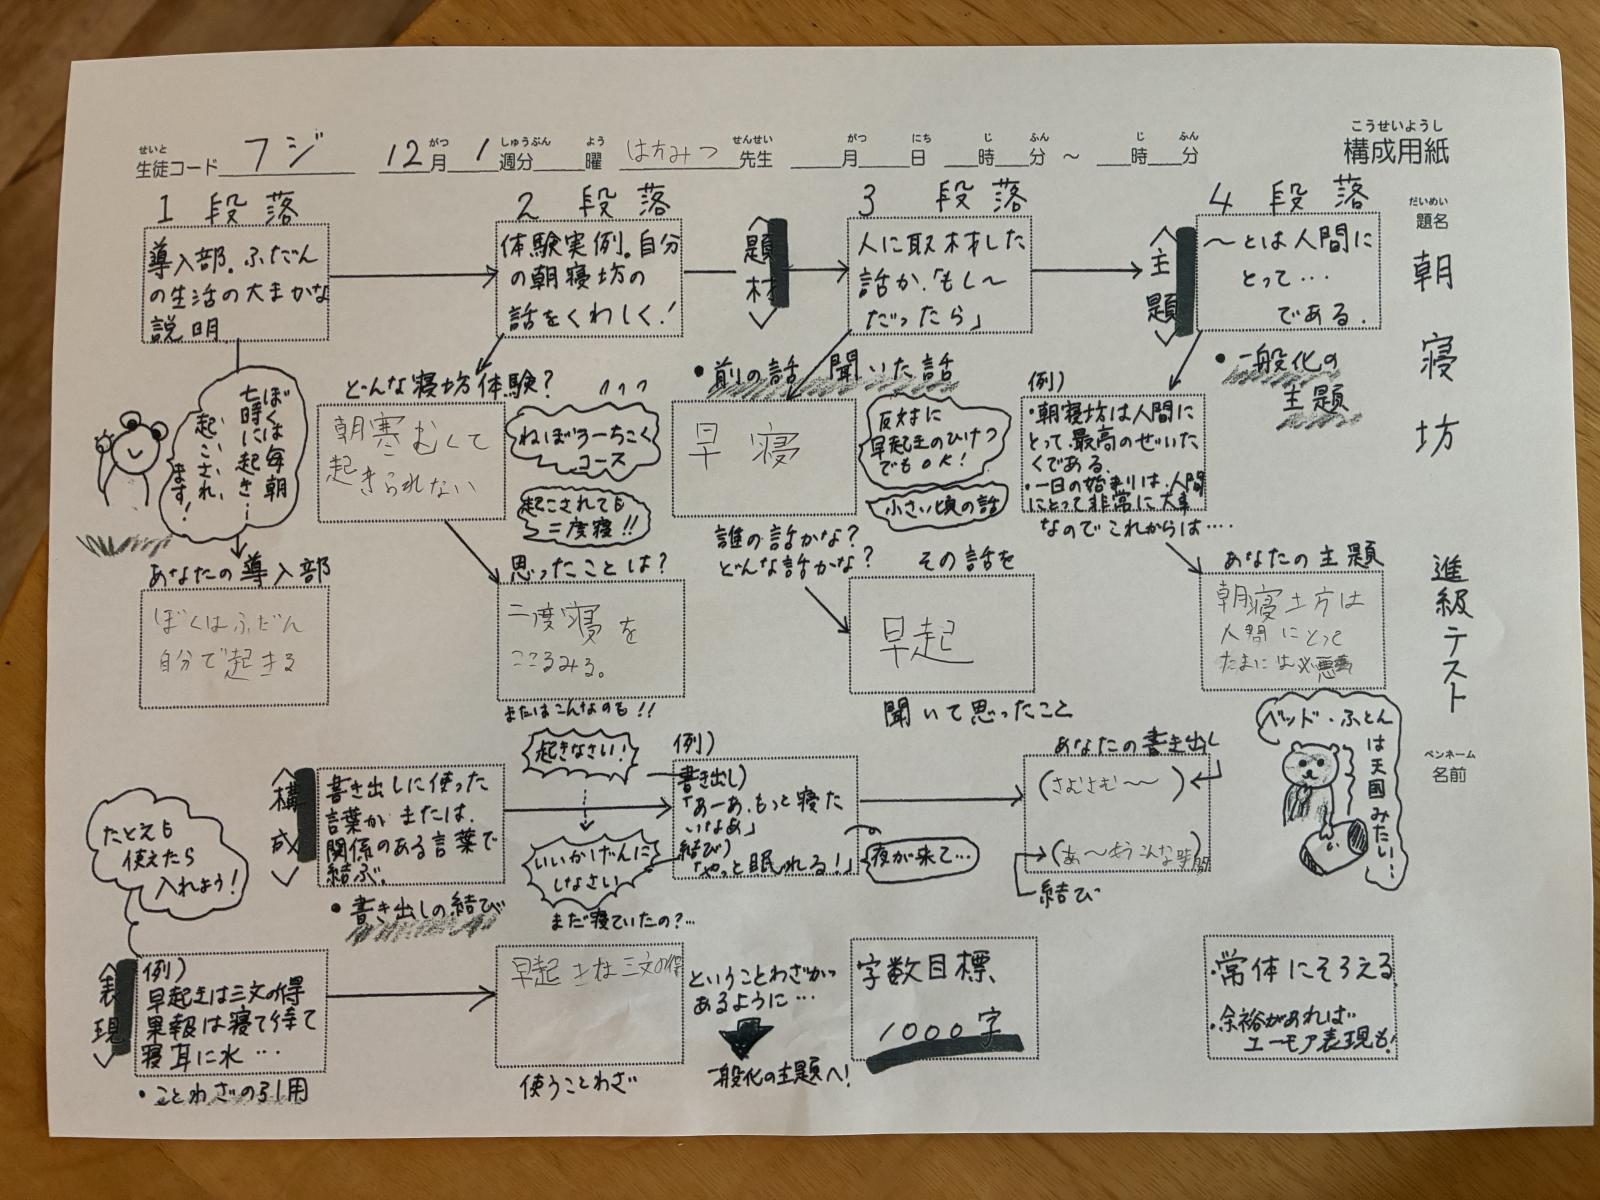 せいと
生徒コード フジ
12月 1週分 曜 はちみつ 先生 月 日 時 分 ～ 時 分
がつ しゅうぶん よう せんせい がつ にち じ ふん じ ふん
こうせいようし
構成用紙
だいめい
題名
朝寝坊
進級テスト
ペンネーム
名前
1 段落
導入部。ふだん
の生活の大まかな
説明
ぼくは毎朝
七時に起き…
起こされ
ます!
あなたの導入部
ぼくはふだん
自分で起きる
2 段落
体験実例。自分
の朝寝坊の
話をくわしく!
どんな寝坊体験?
朝寒むくて
起きられない
ねぼうーちこく
コース
起こされても
二度寝!!
思ったことは?
二度寝を
こころみる。
またはこんなのも!!
題材
3 段落
人に取材した
話か、「もし〜
だったら」
・前の話 聞いた話
早寝
反対に
早起きのひけつ
でもOK!
小さい頃の話
誰の話かな?
どんな話かな?
その話を
早起
聞いて思ったこと
主題
4 段落
〜とは人間に
とって…
である.
・一般化の
主題
例)
・朝寝坊は人間に
とって最高のぜいた
くである.
・一日の始まりは、人間
にとって非常に大事
なのでこれからは‥‥
あなたの主題
朝寝坊は
人間にとって
たまには必要
ベッド・ふとん
は天国みたい…
構成
書き出しに使った
言葉か または、
関係のある言葉で
結ぶ。
・書き出しの結び
起きなさい!
いいかげんに
しなさい
まだ寝ていたの?…
例)
書き出し)
「あーあ、もっと寝た
いなあ」
結び)
「やっと眠れる!」
夜が来て…
あなたの書き出し
(さむさむ〜〜 )
(あ〜もうこんな時間)
結び
たとえも
使えたら
入れよう!
表現
例)
早起きは三文の得
果報は寝て待て
寝耳に水 …
・ことわざの引用
早起きは三文の得
使うことわざ
ということわざが
あるように…
一般化の主題へ!
字数目標、
1000字
・常体にそろえる
・余裕があれば
ユーモア表現も!